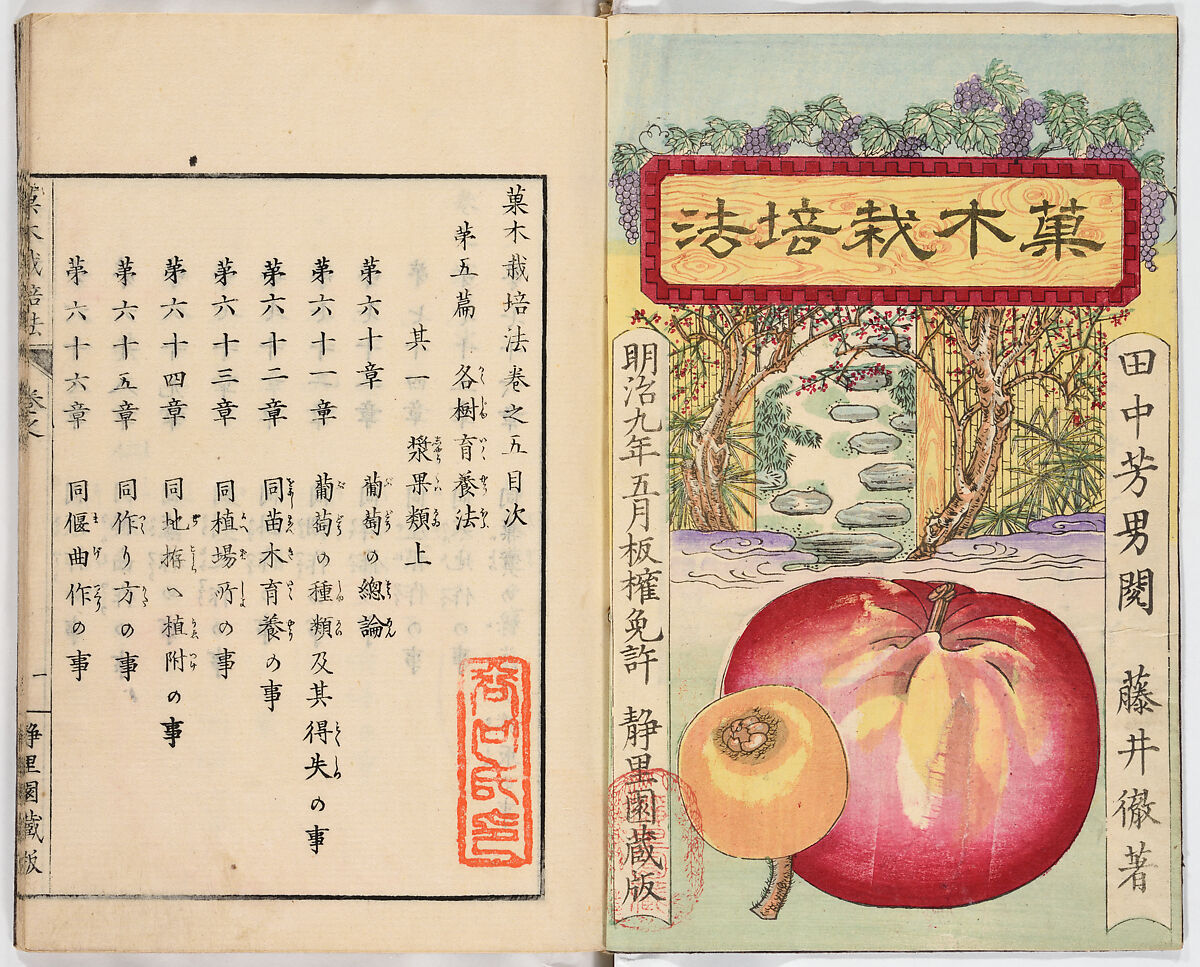 菓木栽培法
田中芳男閱　藤井徹著
明治九年五月板権免許　静里園蔵版
菓木栽培法巻之五目次
第五篇　各樹育養法
其一　漿果類上
第六十章　葡萄の總論
第六十一章　葡萄の種類及其得失の事
第六十二章　同苗木育養の事
第六十三章　同植場所の事
第六十四章　同地拵へ植附の事
第六十五章　同作り方の事
第六十六章　同偃曲作の事
菓木栽培法
巻之
一
静里園蔵版